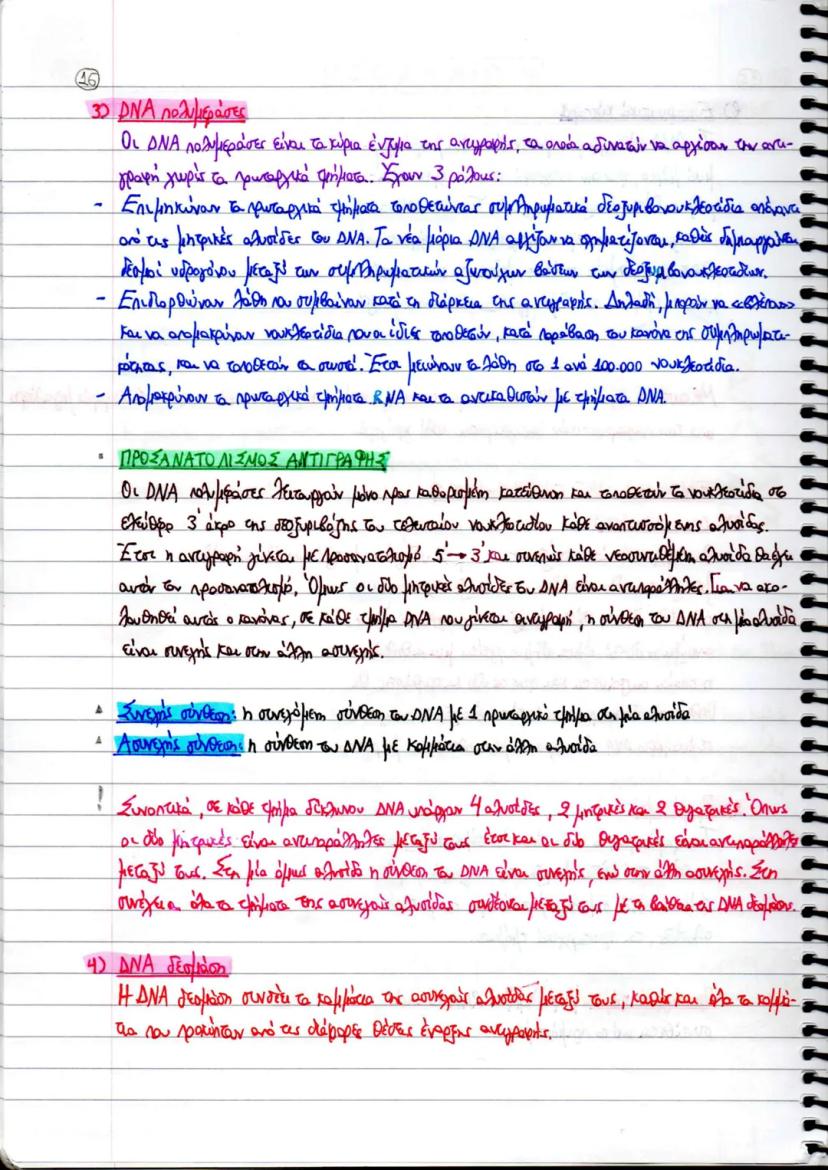 16
3) DNA πολυμεράσες
Οι DNA πολυμεράσες είναι τα κύρια ένζυμα της αντιγραφής, τα οποία αδυνατούν να αρχίσουν την αντι-
γραφή χωρίς τα πρωταρχικά τμήματα. Έχουν 3 ρόλους:
- Επιμηκύνουν τα πρωταρχικά τμήματα τοποθετώντας συμπληρωματικά δεοξυριβονουκλεοτίδια απέναντι
από τις μητρικές αλυσίδες του DNA. Τα νέα μόρια DNA αρχίζουν να σχηματίζονται, καθώς δημιουργούνται
δεσμοί υδρογόνου μεταξύ των συμπληρωματικών αζωτούχων βάσεων των δεοξυριβονουκλεοτιδίων.
- Επιδιορθώνουν λάθη που συμβαίνουν κατά τη διάρκεια της αντιγραφής. Δηλαδή, μπορούν να «βλέπουν»
και να απομακρύνουν νουκλεοτίδια που οι ίδιες τοποθετούν, κατά παράβαση του κανόνα της συμπληρωματι-
κότητας, και να τοποθετούν τα σωστά. Έτσι μειώνουν τα λάθη στο 1 ανά 100.000 νουκλεοτίδια.
- Απομακρύνουν τα πρωταρχικά τμήματα RNA και τα αντικαθιστούν με τμήματα DNA.
▪ ΠΡΟΣΑΝΑΤΟΛΙΣΜΟΣ ΑΝΤΙΓΡΑΦΗΣ
Οι DNA πολυμεράσες λειτουργούν μόνο προς καθορισμένη κατεύθυνση και τοποθετούν τα νουκλεοτίδια στο
ελεύθερο 3' άκρο της δεοξυριβόζης του τελευταίου νουκλεοτιδίου κάθε αναπτυσσόμενης αλυσίδας.
Έτσι η αντιγραφή γίνεται με προσανατολισμό 5' → 3' και συνεπώς κάθε νεοσυντιθέμενη αλυσίδα θα έχει
αυτόν τον προσανατολισμό. Όμως οι δύο μητρικές αλυσίδες του DNA είναι αντιπαράλληλες. Για να ακο-
λουθηθεί αυτός ο κανόνας, σε κάθε τμήμα DNA που γίνεται αντιγραφή, η σύνθεση του DNA στη μία αλυσίδα
είναι συνεχής και στην άλλη ασυνεχής.
▲ Συνεχής σύνθεση: η συνεχόμενη σύνθεση του DNA με 1 πρωταρχικό τμήμα στη μία αλυσίδα
▲ Ασυνεχής σύνθεση: η σύνθεση του DNA με κομμάτια στην άλλη αλυσίδα
! Συνοπτικά, σε κάθε τμήμα δίκλωνου DNA υπάρχουν 4 αλυσίδες, 2 μητρικές και 2 θυγατρικές. Όπως
οι δύο μητρικές είναι αντιπαράλληλες μεταξύ τους έτσι και οι δύο θυγατρικές είναι αντιπαράλληλες
μεταξύ τους. Στη μία όμως αλυσίδα η σύνθεση του DNA είναι συνεχής, ενώ στην άλλη ασυνεχής. Στη
συνέχεια όλα τα τμήματα της ασυνεχούς αλυσίδας συνδέονται μεταξύ τους με τη βοήθεια της DNA δεσμάσης.
4) DNA δεσμάση
Η DNA δεσμάση συνδέει τα κομμάτια της ασυνεχούς αλυσίδας μεταξύ τους, καθώς και όλα τα κομμά-
τια που προκύπτουν από τις διάφορες θέσεις έναρξης αντιγραφής.